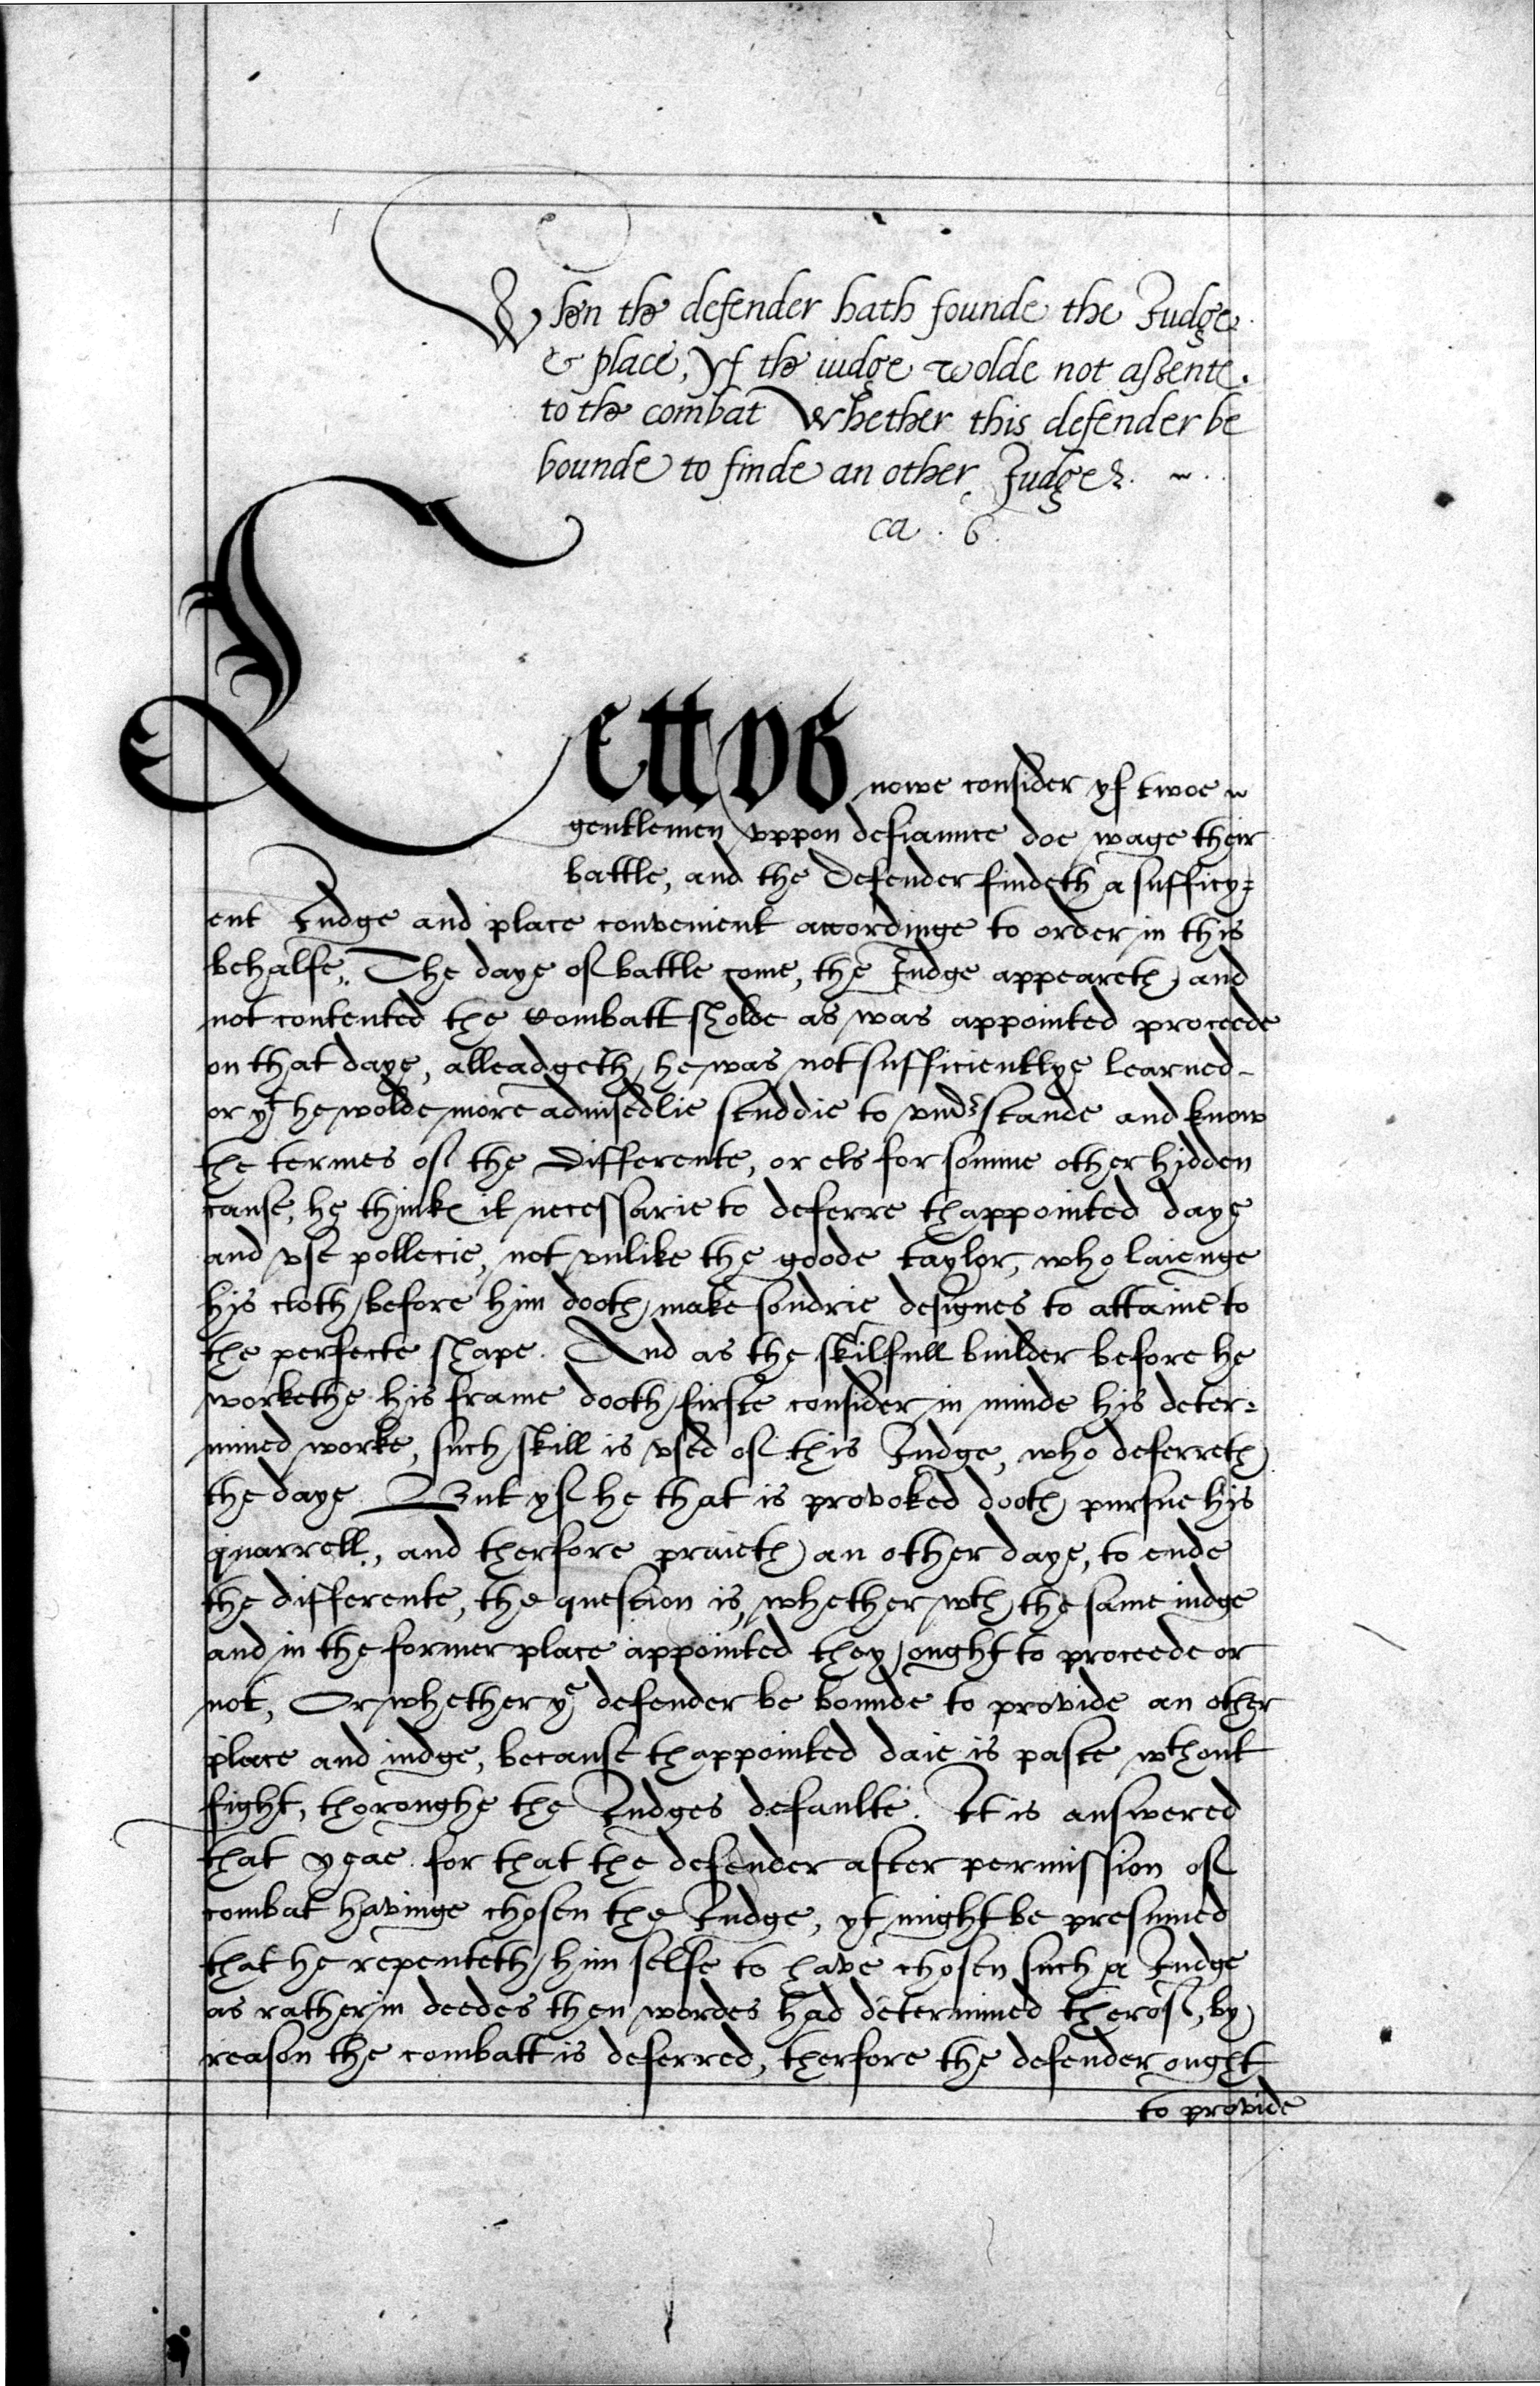 When the defender hath founde the Judge
& place, Yf the iudge wolde not assente
to the combat Whether this defender be
bounde to finde an other Judge
ca . 6.
Lett vs nowe consider yf twoe
gentlemen vppon defiaunce doe wage their
battle, and the Defender findeth a sufficy=
ent Judge and place convenient accordinge to order in this
behalfe. The daye of battle come, the Judge appeareth and
not contented the Combatt sholde as was appointed proceede
on that daye, alleadgeth he was not sufficientlye learned
or yt he wolde more advisedlie studdie to vnderstande and know
the termes of the Differente, or els for somme other hidden
cause, he thinks it necessarie to deferre thappointed daye
and vse pollecie, not vnlike the goode taylor, who laienge
his cloth before him dooth make sondrie designes to attaine to
the perfecte shape. And as the skilfull builder before he
workethe his frame dooth firste consider in minde his deter=
mined worke, such skill is vsed of this Judge, who deferreth
the daye. But yf he that is provoked dooth pursue his
quarrell, and therfore praieth an other daye, to ende
the differente, the question is, whether wth the same iudge
and in the former place appointed they ought to proceede or
not, Or whether ye defender be bounde to provide an other
place and iudge, because thappointed daie is paste wthout
fight, thoroughe the Judges defaulte. It is answered
that yeae. for that the defender after permission of
combat havinge chosen the Judge, yt might be presumed
that he repenteth him selfe to have chosen such a Judge
as rather in deedes then wordes had determined therof, by
reason the combatt is deferred, therfore the defender ought
to provide